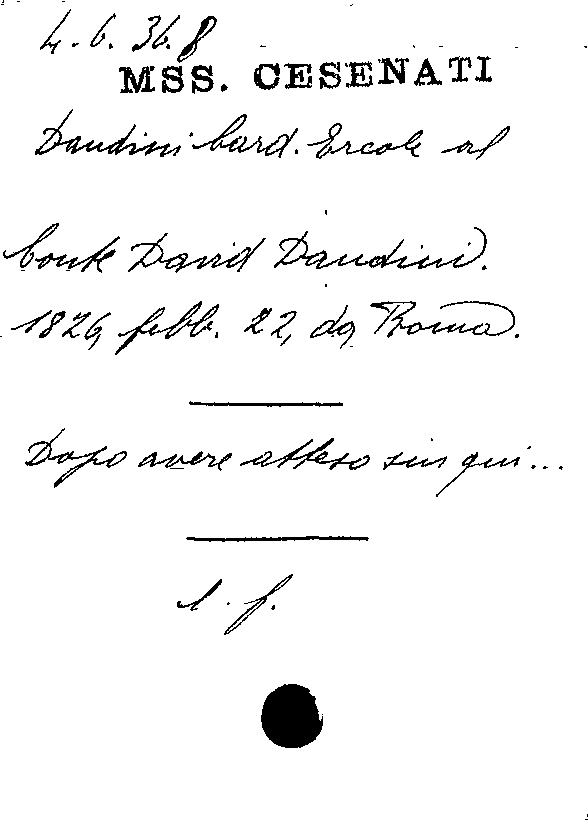 4.6.36.8
MSS. CESENATI
Dandini Card. Ercole al
Conte David Dandini.
1826, febb. 22, da Roma.
Dopo avere atteso sin qui...
1. f.